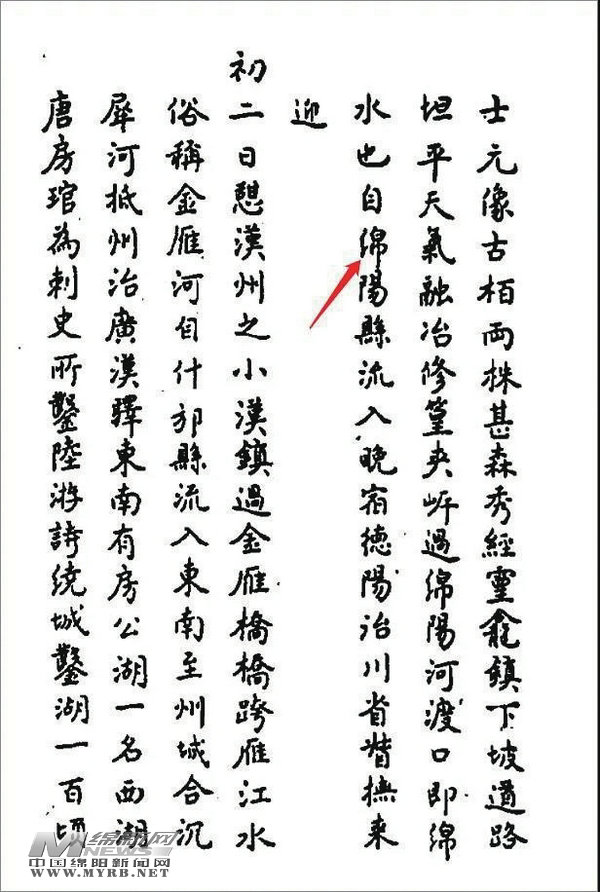 士元像古柏兩株甚森秀經靈龕鎮下坡道路
坦平天氣融冶修篁夾岍過綿陽河渡口即綿
水也自綿陽縣流入晚宿德陽治川省督撫來
迎
初二日憇漢州之小漢鎮過金雁橋橋跨雁江水
俗稱金雁河自什邡縣流入東南至州城合沉
犀河抵州治廣漢驛東南有房公湖一名西湖
唐房琯為刺史所鑿陸游詩繞城鑿湖一百頃
绵新网
MNEWS
中国绵阳新闻网
WWW.MYRB.NET